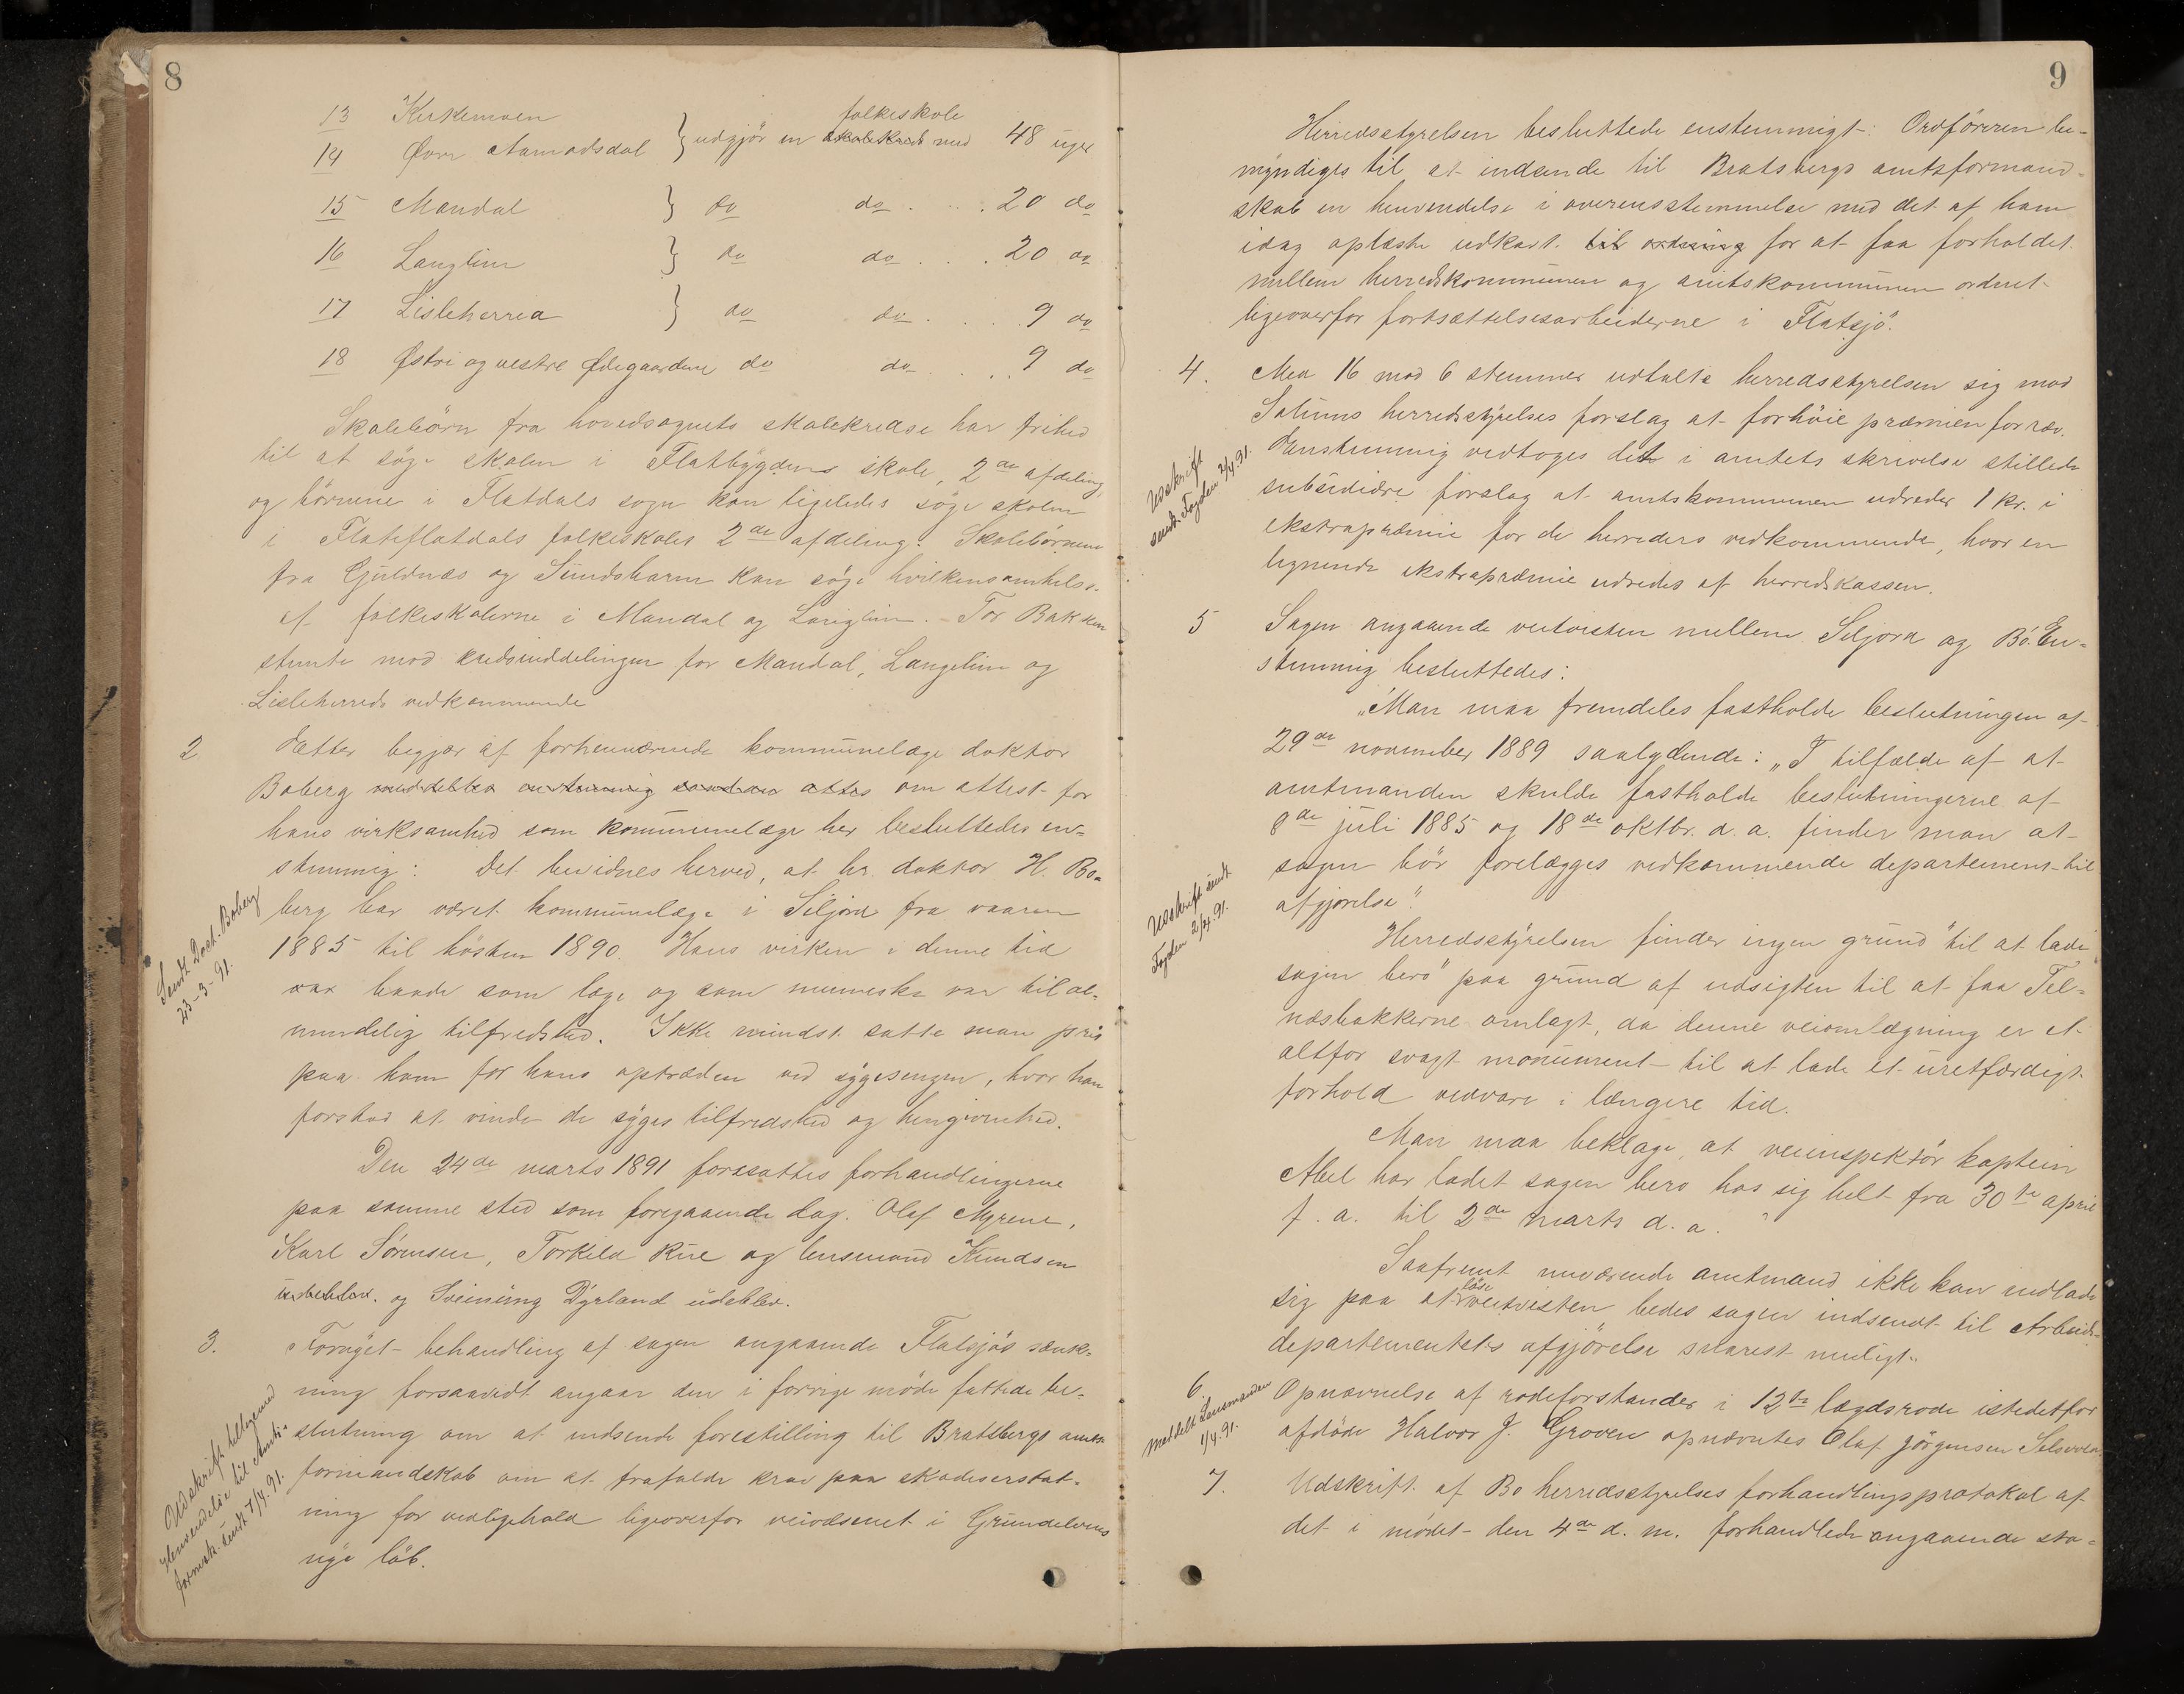 8
13 Kirkemoen
14 Øvre Aamodsdal } udgjør en folkeskole skolekreds med 48 uger
15 Mandal } do do . . . 20 do
16 Langlim } do do . . . 20 do
17 Lisleherred } do do . . . 9 do
18 Østre og vestre Ødegaardene do do . . . 9 do
Skolebörn fra hovedsognets skolekredse har frihed
til at søge skolen i Flatbygdens skole, 2de afdeling,
og börnene i Flatdals sogn kan ligeledes söge skolen
i Flateflatdals folkeskoles 2de afdeling. Skolebörnene
fra Gjuldnæs og Sundsbarm kan söge hvilkensomhelst
af folkeskolerne i Mandal og Langlim. – Tor Bakken
stemte mod kredsinddelingen for Mandal, Langelim og
Lisleherreds vedkommende
2 Efter begjær af forhenværende kommunelæge doktor
Boberg meddeltes enstemmig saadan attes om attest for
hans virksamhed som kommunelæge her besluttedes en-
stemmig: Det bevidnes herved, at hr. doktor H. Bo-
berg har været kommunelæge i Siljord fra vaaren
1885 til hösten 1890. Hans virken i denne tid
var baade som læge og som menneske var til al-
mindelig tilfredshed. Ikke mindst satte man pris
paa ham for hans optræden ved sygesengen, hvor han
forstod at vinde de syges tilfredshed og hengivenhed.
Sendt Doct. Boberg
23-3-91.
Den 24de marts 1891 foresattes forhandlingerne
paa samme sted som foregaaende dag. Olaf Myrene,
Karl Sørensen, Torkild Rue og lensmand Knudsen
udeblev. og Sveinung Dyrland udeblev.
3. Fornyet behandling af sagen angaaende Flatsjøs sænk-
ning forsaavidt angaar den i forrige møde fattede be-
slutning om at indsende forestilling til Bratsbergs amts
formandskab om at frafalde krav paa skadeserstat-
ning for vedligehold ligeoverfor veivæsenet i Grundelvens
nye löb.
Udskrift tilligemed
Henvendelse til Amts-
formsk. sendt 7/4.91.
9
Herredsstyrelsen besluttede enstemmigt: Ordföreren be-
myndiges til at indsende til Bratsbergs amtsformand-
skab en henvendelse i overensstemmelse med det af ham
idag oplæste udkast til ordning for at faa forholdet
mellem herredskommunen og amtskommunen ordnet
ligeoverfor fortsættelsesarbeiderne i Flatsjö".
4. Med 16 mod 6 stemmer udtalte herredsstyrelsen sig mod
Solums herredsstyrelses forslag at forhöie præmien for ræv.
Enstemmig vedtoges det i amtets skrivelse stillede
subsidiære forslag at amtskommunen udreder 1 kr. i
ekstrapræmie for de herreders vedkommende, hvor en
lignende ekstrapræmie udredes af herredskassen.
Udskrift
sendt Fogden 2/4.91.
5 Sagen angaaende veitvisten mellem Siljord og Bö. En-
stemmig besluttedes:
„Man maa fremdeles fastholde beslutningen af
29de november 1889 saalydende: „I tilfælde af at
amtmanden skulde fastholde beslutningerne af
8de juli 1885 og 18de oktbr. d. a. finder man at
sagen bör forelægges vedkommende departement til
afgjørelse".
Udskrift sendt
Fogden 2/4.91.
Herredsstyrelsen finder ingen grund "til at lade
sagen bero" paa grund af udsigten til at faa Tel-
næsbakkerne omlagt, da denne veiomlægning er et
altfor svagt monument til at lade et uretfærdigt
forhold vedvare i længere tid.
Man maa beklage, at veiinspektör kaptein
Abel har ladet sagen bero hos sig helt fra 30te april
f. a. til 2de marts d. a.
Saafremt nuværende amtmand ikke kan indlade
sig paa at löse veitvisten bedes sagen indsendt til Arbeids-
departementets afgjörelse snarest muligt.
6. Opnævnelse af rodeforstander i 12te lægdsrode istedetfor
afdöde Halvor J. Groven opnævntes Olaf Jörgensen Selsvold
Meddelt Lensmanden
1/4.91.
7. Udskrift af Bø herredsstyrelses forhandlingsprotokol af
det i mödet den 4de d. m. forhandlede angaaende sta-